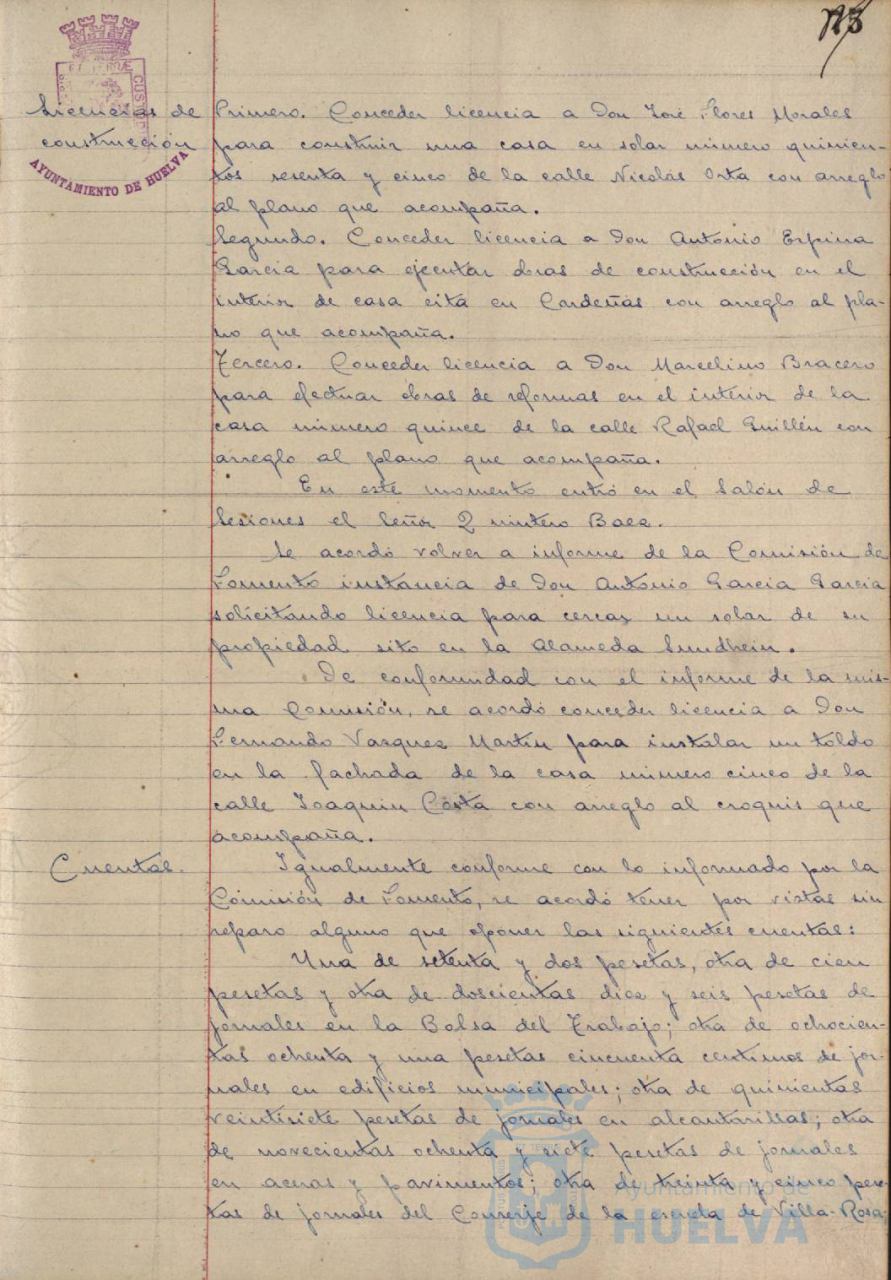 113
Licencias de
construcción
AYUNTAMIENTO DE HUELVA
Primero. Conceder licencia a Don José Flores Morales
para construir una casa en solar número quinien-
tos sesenta y cinco de la calle Nicolás Orta con arreglo
al plano que acompaña.
Segundo. Conceder licencia a Don Antonio Espina
Garcia para ejecutar obras de construcción en el
interior de casa cita en Cardeñas con arreglo al pla-
no que acompaña.
Tercero. Conceder licencia a Don Marcelino Bracero
para efectuar obras de reformas en el interior de la
casa número quince de la calle Rafael Guillén con
arreglo al plano que acompaña.
En este momento entró en el Salón de
Sesiones el Señor Quintero Baez.
Se acordó volver a informe de la Comisión de
Fomento instancia de Don Antonio Garcia Garcia
solicitando licencia para cercar un solar de su
propiedad sito en la Alameda Sundhein.
De conformidad con el informe de la mis-
ma Comisión, se acordó conceder licencia a Don
Fernando Vazquez Martin para instalar un toldo
en la fachada de la casa número cinco de la
calle Joaquin Costa con arreglo al croquis que
acompaña.
Cuentas.
Igualmente conforme con lo informado por la
Comisión de Fomento, se acordó tener por vistas sin
reparo alguno que oponer las siguientes cuentas:
Una de setenta y dos pesetas, otra de cien
pesetas y otra de doscientas diez y seis pesetas de
jornales en la Bolsa del Trabajo; otra de ochocien-
tas ochenta y una pesetas cincuenta centimos de jor-
nales en edificios municipales; otra de quinientas
veintisiete pesetas de jornales en alcantarillas; otra
de novecientas ochenta y siete pesetas de jornales
en aceras y pavimentos; otra de treinta y cinco pese-
tas de jornales del Conserje de la escuela de Villa-Rosa;
Ayuntamiento de
HUELVA